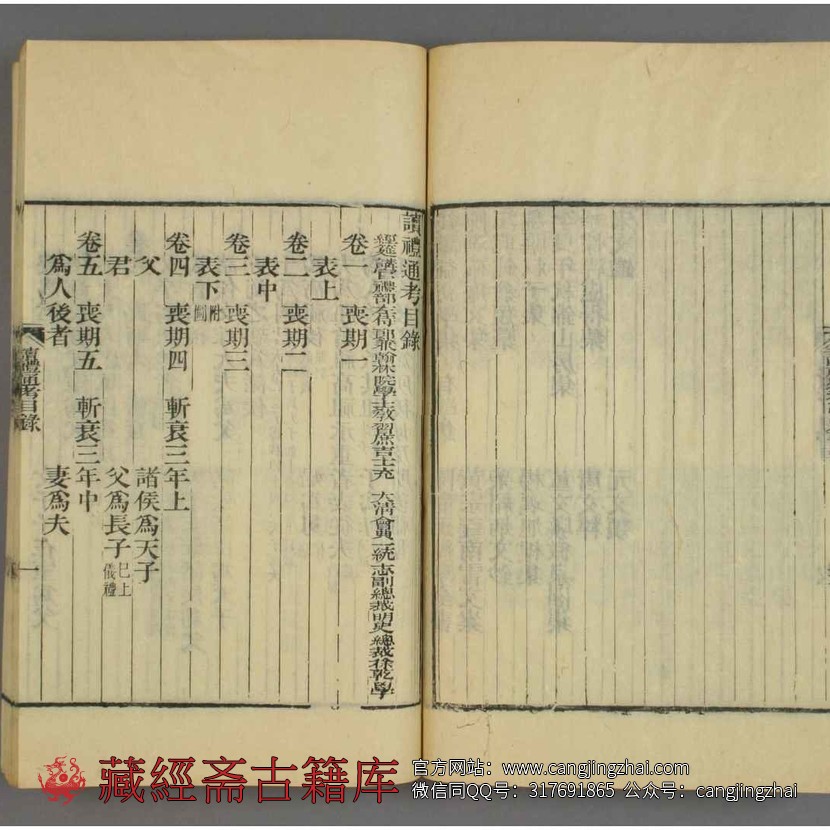 讀禮通考目錄
經筵講官禮部左侍郎兼翰林院學士教習庶吉士充　大清會典一統志副總裁明史總裁徐乾學
卷一　喪期一
表上
卷二　喪期二
表中
卷三　喪期三
表下附圖
卷四　喪期四　斬衰三年上
父　諸侯為天子
君　父為長子巳上儀禮
卷五　喪期五　斬衰三年中
為人後者　妻為夫
讀禮通考目錄　一
藏經斋古籍库
官方网站：www.cangjingzhai.com
微信同QQ号：317691865 公众号：cangjingzhai